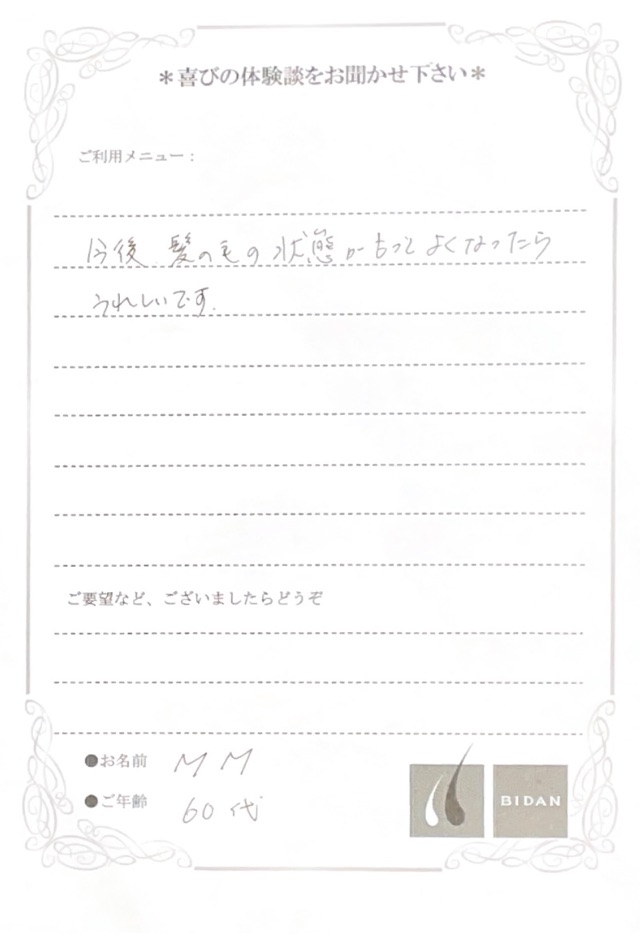 ＊喜びの体験談をお聞かせ下さい＊
ご利用メニュー：
今後、髪の毛の状態がもっとよくなったら
うれしいです.
ご要望など、ございましたらどうぞ
●お名前 MM
●ご年齢 60代
BIDAN